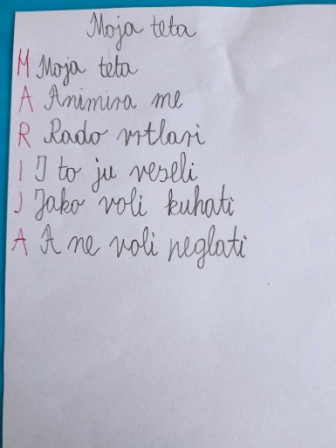 Moja teta
M Moja teta
A Animira me
R Rado vrtlari
I I to ju veseli
J Jako voli kuhati
A A ne voli peglati